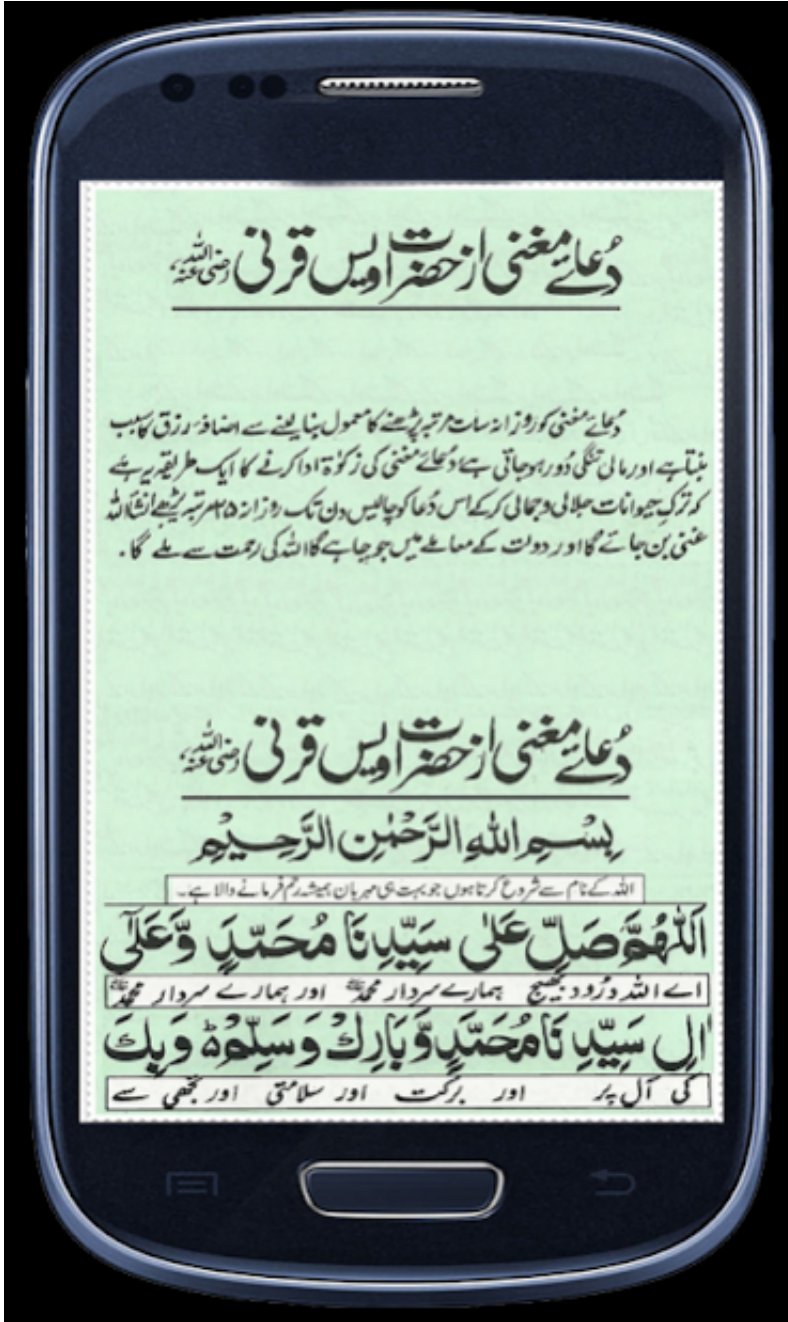 دُعائے مغنی از حضرت اویس قرنی رضی اللہ عنہ
دُعائے مغنی کو روزانہ سات مرتبہ پڑھنے کا معمول بنا لینے سے اضافۂ رزق کا سبب
بنتا ہے اور مالی تنگی دُور ہو جاتی ہے۔ دُعائے مغنی کی زکوٰۃ ادا کرنے کا ایک طریقہ یہ ہے
کہ ترکِ حیوانات جلالی و جمالی کرکے اس دُعا کو چالیس دن تک روزانہ ۲۵ مرتبہ پڑھے انشاء اللہ
غنی بن جائے گا اور دولت کے معاملے میں جو چاہے گا اللہ کی رحمت سے ملے گا۔
دُعائے مغنی از حضرت اویس قرنی رضی اللہ عنہ
بِسْمِ اللهِ الرَّحْمٰنِ الرَّحِيْمِ
اللہ کے نام سے شروع کرتا ہوں جو بہت ہی مہربان ہمیشہ رحم فرمانے والا ہے۔
اَللّٰهُمَّ صَلِّ عَلٰى سَيِّدِنَا مُحَمَّدٍ وَّعَلٰٓى
اے اللہ درُود بھیج ہمارے سردار محمدﷺ اور ہمارے سردار محمدﷺ
اٰلِ سَيِّدِنَا مُحَمَّدٍ وَّبَارِكْ وَسَلِّمْ ط وَبِكَ
کی آل پر اور برکت اور سلامتی اور تجھی سے